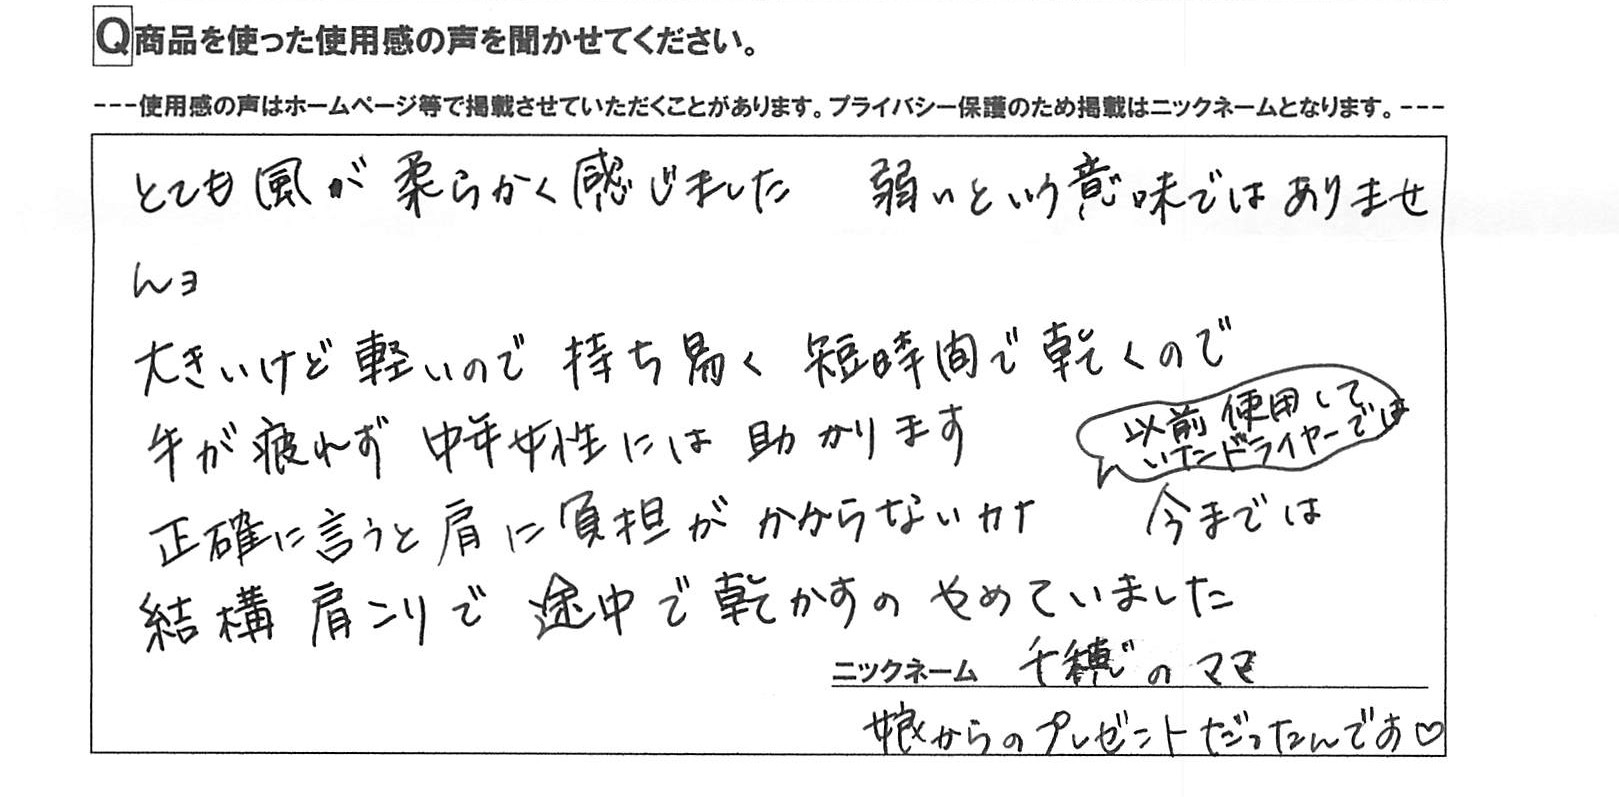 Q商品を使った使用感の声を聞かせてください。
---使用感の声はホームページ等で掲載させていただくことがあります。プライバシー保護のため掲載はニックネームとなります。---
とても風が柔らかく感じました 弱いという意味ではありませ
んヨ
大きいけど軽いので持ち易く 短時間で乾くので
手が疲れず 中年女性には助かります
以前使用して
いたドライヤーでは
正確に言うと肩に負担がかからないカナ 今までは
結構肩こりで途中で乾かすのやめていました
ニックネーム 千穂のママ
娘からのプレゼントだったんです♡